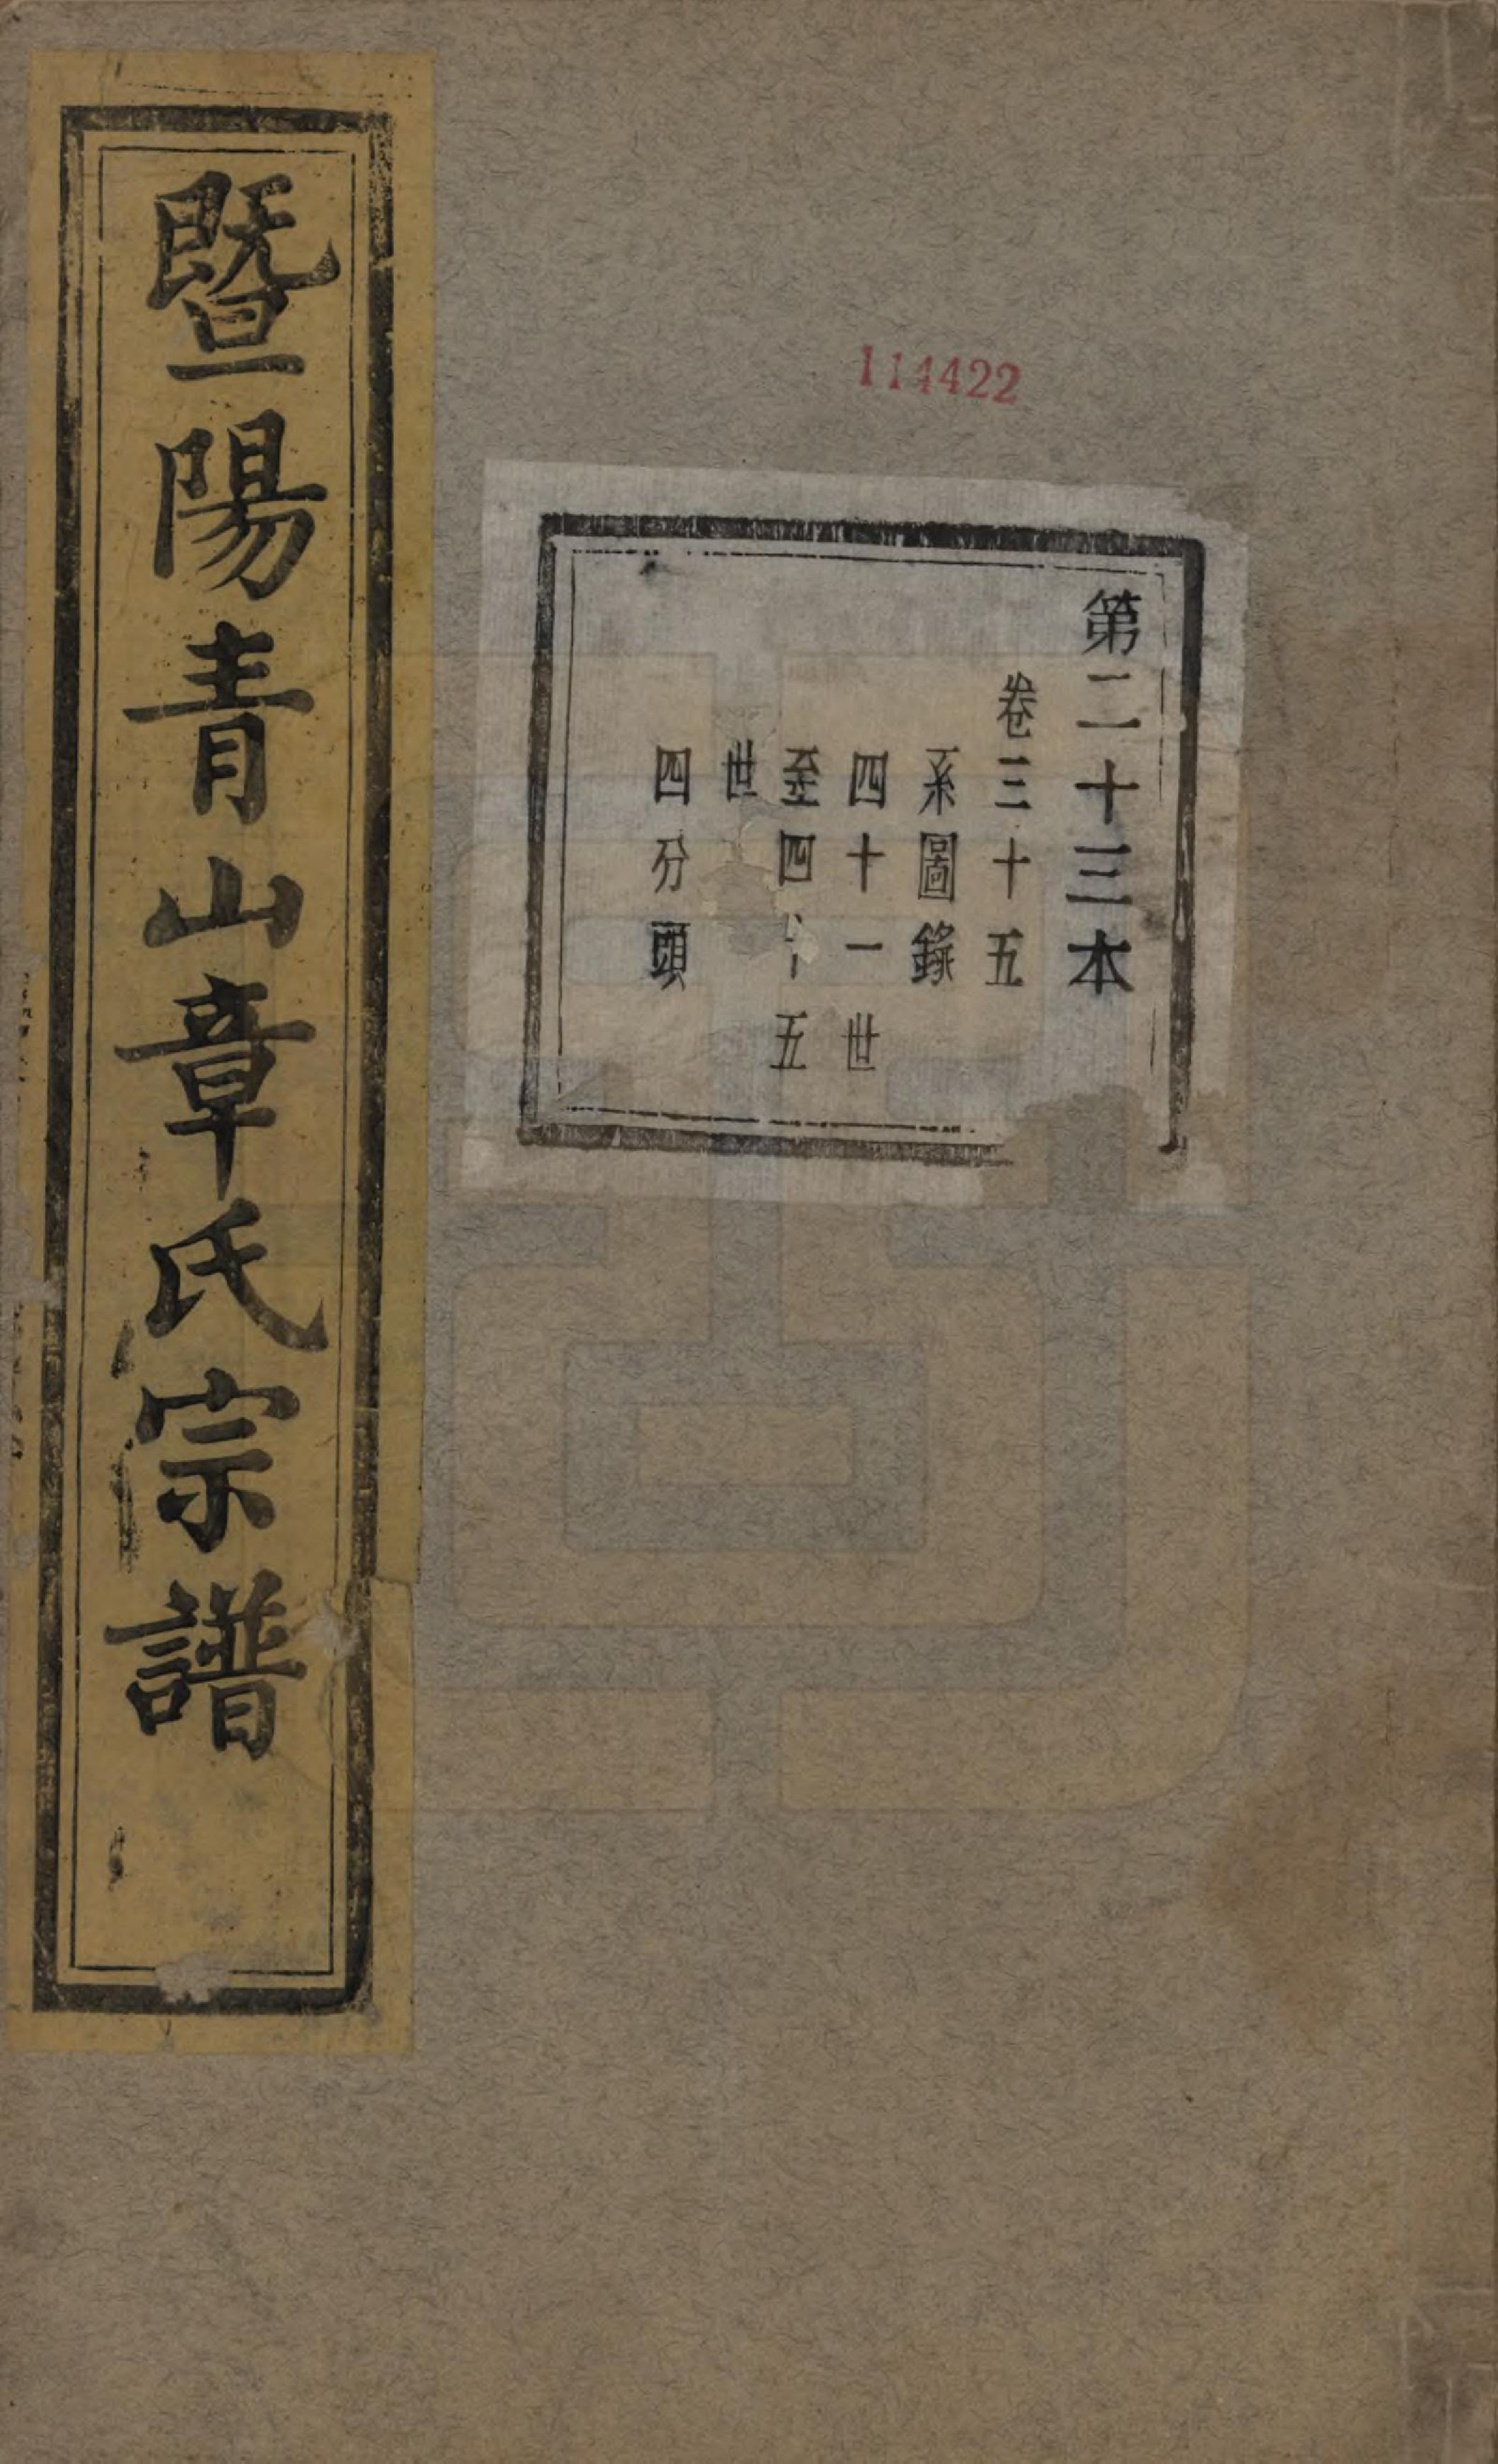 114422
第二十三本
卷三十五
系圖錄
四十一世
至四十五
世
四分頭
暨陽青山章氏宗譜